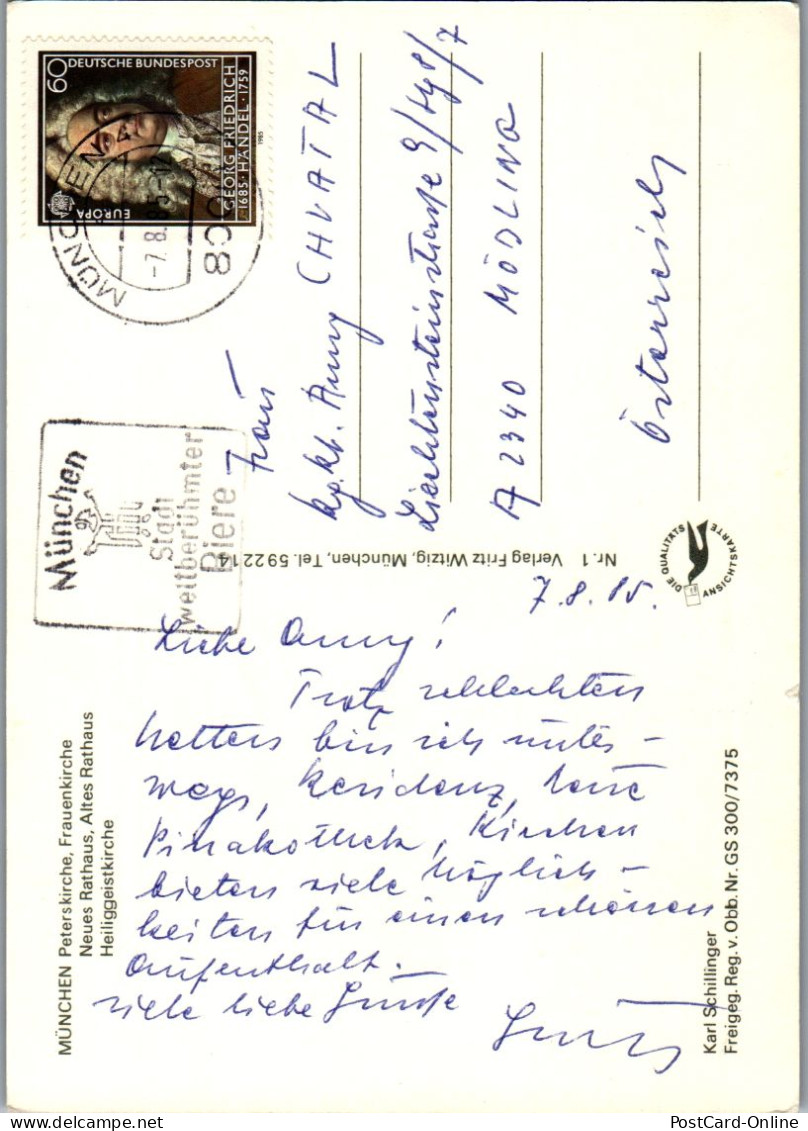 MÜNCHEN Peterskirche, Frauenkirche
Neues Rathaus, Altes Rathaus
Heiliggeistkirche
7.8.85.
Liebe Anny!
Trotz schlechten
Wetters bin ich unter-
wegs, Residenz, Neue
Pinakothek, Kirchen
bieten viele Möglich-
keiten für einen schönen
Aufenthalt.-
viele liebe Grüße
Karl Schillinger
Freigeg. Reg. v. Obb. Nr. GS 300/7375
Nr. 1 Verlag Fritz Witzig, München, Tel. 592214
DIE QUALITÄTS
ANSICHTSKARTE
München
Stadt
weltberühmter
Biere
MÜNCHEN
-7.8.85-12
8000
60 DEUTSCHE BUNDESPOST
GEORG FRIEDRICH
1685·HÄNDEL·1759
EUROPA
1985
Frau
Anny CHVATAL
Liechtensteinstrasse
A 2340 MÖDLING
Österreich
PostCard-Online